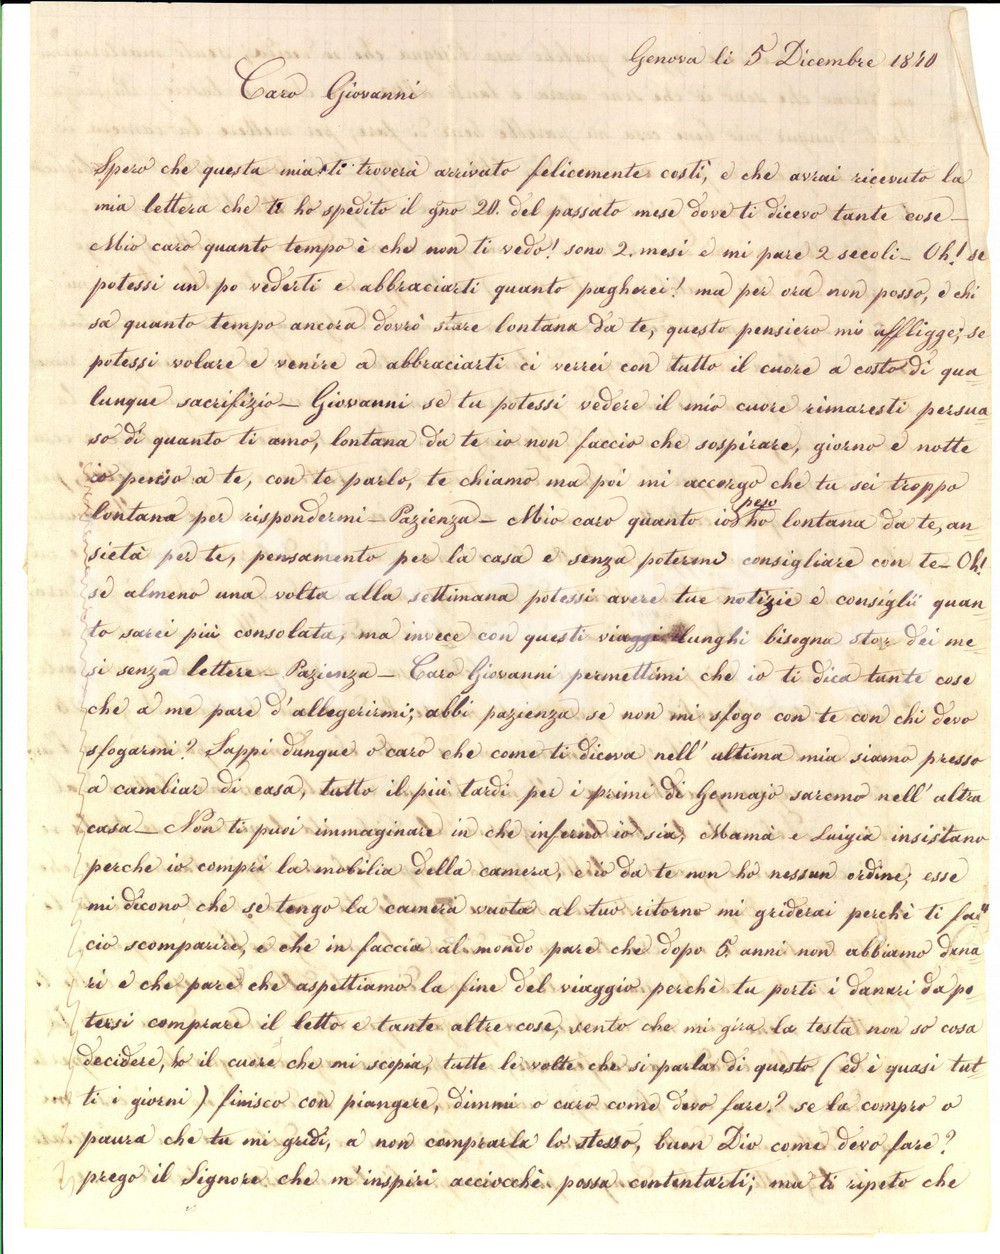 Genova li 5 Dicembre 1840
Caro Giovanni
Spero che questa mia ti troverà arrivato felicemente costì, e che avrai ricevuto la
mia lettera che ti ho spedito il gno 20. del passato mese dove ti dicevo tante cose_
Mio caro quanto tempo è che non ti vedo! sono 2. mesi e mi pare 2 secoli_ Oh! se
potessi un po vederti e abbraciarti quanto pagherei! ma per ora non posso, e chi
sa quanto tempo ancora dovrò stare lontana da te, questo pensiero mi affligge; se
potessi volare e venire a abbraciarti ci verrei con tutto il cuore a costo di qua-
lunque sacrifizio_ Giovanni se tu potessi vedere il mio cuore rimaresti persua-
so di quanto ti amo, lontana da te io non faccio che sospirare, giorno e notte
io penso a te, con te parlo, te chiamo ma poi mi accorgo che tu sei troppo
lontana per rispondermi_ Pazienza_ Mio caro quanto io peso ho lontana da te, an-
sietà per te, pensamento per la casa e senza potermi consigliare con te_ Oh!
se almeno una volta alla settimana potessi avere tue notizie e consiglii quan-
to sarei più consolata, ma invece con questi viaggi lunghi bisogna star dei me-
si senza lettere_ Pazienza_ Caro Giovanni permettimi che io ti dica tante cose
che a me pare d'allegerirmi; abbi pazienza se non mi sfogo con te con chi devo
sfogarmi? Sappi dunque o caro che come ti diceva nell' ultima mia siamo presso
a cambiar di casa, tutto il più tardi per i primi di Gennajo saremo nell' altra
casa_ Non ti puoi immaginare in che inferno io sia, Mamà e Luigia insistano
perche io compri la mobilia della camera, e io da te non ho nessun ordine; esse
mi dicono che se tengo la camera vuota al tuo ritorno mi griderai perchè ti fac"
cio scomparire, e che in faccia al mondo pare che dopo 5. anni non abbiamo dana-
ri e che pare che aspettiamo la fine del viaggio perchè tu porti i danari da po-
tersi comprare il letto e tante altre cose, sento che mi gira la testa non so cosa
decidere, ho il cuore che mi scopia, tutte le volte che si parla di questo (ed è quasi tut-
ti i giorni) finisco con piangere, dimmi o caro come devo fare? se la compro o
paura che tu mi gridi, a non comprarla lo stesso, buon Dio come devo fare?
prego il Signore che m'inspiri acciocchè possa contentarti; ma ti ripeto che